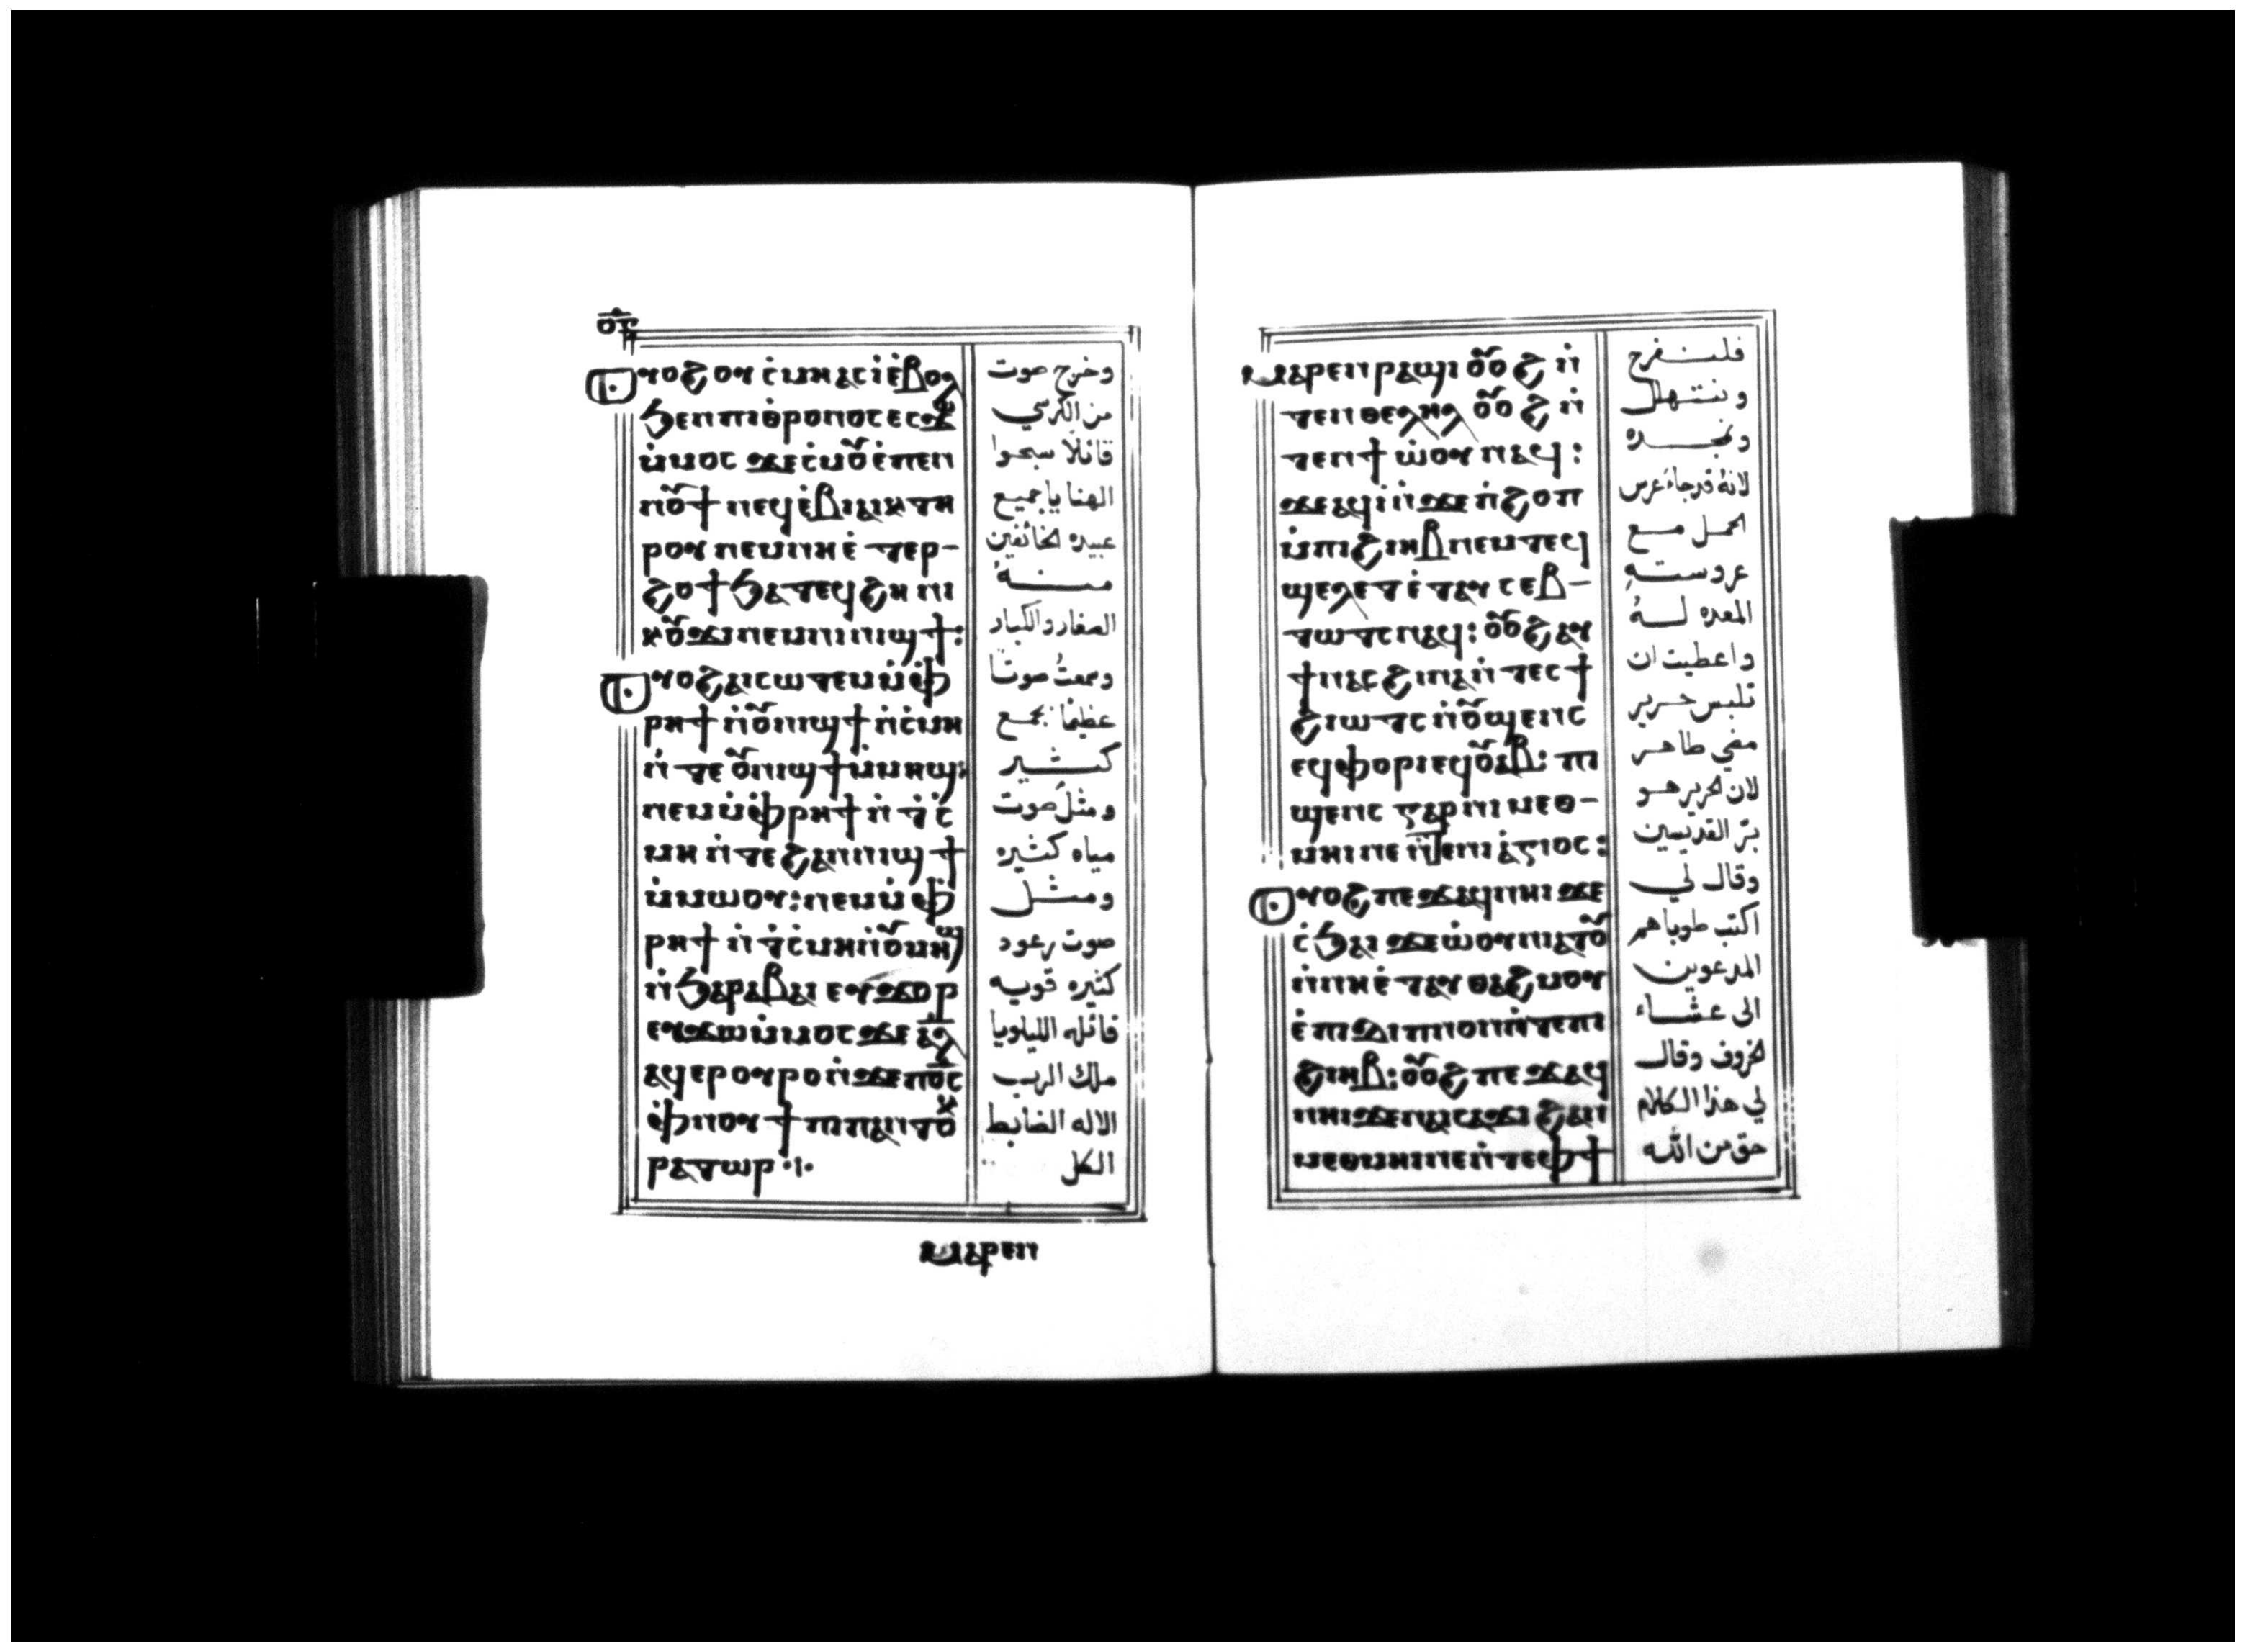 ⲟⲩⲟϩ ⲟⲩⲥ̀ⲙⲏ ⲁⲥⲓ̀ ⲉ̀ⲃⲟⲗ
ϧⲉⲛ ⲡⲓⲑ̀ⲣⲟⲛⲟⲥ ⲉⲥϫⲱ
ⲙ̀ⲙⲟⲥ ϫⲉ ⲥ̀ⲙⲟⲩ ⲉ̀ⲡⲉⲛ
ⲛⲟⲩϯ ⲛⲉϥⲉ̀ⲃⲓⲁⲓⲕ ⲧⲏ
ⲣⲟⲩ ⲛⲉⲙ ⲛⲏ ⲉ̀ⲧⲉⲣ-
ϩⲟϯ ϧⲁⲧⲉϥϩⲏ ⲛⲓ
ⲕⲟⲩϫⲓ ⲛⲉⲙ ⲛⲓⲛⲓϣϯ:
ⲟⲩⲟϩ ⲁⲓⲥⲱⲧⲉⲙ ⲙ̀ⲫ̀
ⲣⲏϯ ⲛ̀ⲟⲩⲛⲓϣϯ ⲛ̀ⲥ̀ⲙⲏ
ⲛ̀ⲧⲉ ⲟⲩⲛⲓϣϯ ⲙ̀ⲙⲏϣ:
ⲛⲉⲙ ⲙ̀ⲫ̀ⲣⲏϯ ⲛ̀ⲧ̀ⲥ̀
ⲙⲏ ⲛ̀ⲧⲉ ϩⲁⲛⲛⲓϣϯ
ⲙ̀ⲙⲱⲟⲩ: ⲛⲉⲙ ⲙ̀ⲫ̀
ⲣⲏϯ ⲛ̀ⲧ̀ⲥ̀ⲙⲏ ⲛ̀ⲟⲩⲙⲏϣ
ⲛ̀ϧⲁⲣⲁⲃⲁⲓ ⲉⲩϫⲟⲣ
ⲉⲩϫⲱ ⲙ̀ⲙⲟⲥ ϫⲉ ⲁⲗ
ⲁϥⲉⲣⲟⲩⲣⲟ ⲛ̀ϫⲉ ⲡϭⲥ
ⲫ̀ⲛⲟⲩϯ ⲡⲓⲡⲁⲛⲧⲟⲕ
ⲣⲁⲧⲱⲣ
وخرج صوت
من الكرسي
قائلاً سبحوا
الهنا يا جميع
عبيده الخائفين
منه
الصغار والكبار
وسمعتُ صوتاً
عظيماً بجمع
كثير
ومثل صوت
مياه كثيره
ومثل
صوت رعود
كثيره قويه
قائله الليلويا
ملك الرب
الاله الضابط
الكل
ⲙⲁⲣⲉⲛ
ⲙⲁⲣⲉⲛⲣⲁϣⲓ ⲟⲩⲟϩ ⲛ̀
ⲧⲉⲛⲑⲉⲗⲏⲗ ⲟⲩⲟϩ ⲛ̀
ⲧⲉⲛϯ ⲱ̀ⲟⲩ ⲛⲁϥ:
ϫⲉ ⲁϥⲓ̀ ⲛ̀ϫⲉ ⲛ̀ϩⲟⲡ
ⲙ̀ⲡⲓϩⲓⲏⲃ ⲛⲉⲙ ⲧⲉϥ
ϣⲉⲗⲉⲧ ⲉ̀ⲧⲁⲩⲥⲉⲃ-
ⲧⲱⲧⲥ ⲛⲁϥ: ⲟⲩⲟϩ ⲁⲩ
ϯⲛⲁⲥ ϩⲓⲛⲁ ⲛ̀ⲧⲉⲥϯ
ϩⲓⲱⲧⲥ ⲛ̀ⲟⲩϣⲉⲛⲥ
ⲉϥⲫⲟⲣⲓ ⲉϥⲟⲩⲏⲃ: ⲡⲓ
ϣⲉⲛⲥ ⲅⲁⲣ ⲡⲓⲙⲉⲑ-
ⲙⲏⲓ ⲡⲉ ⲛ̀ⲛⲓⲁ̀ⲅⲓⲟⲥ:
ⲟⲩⲟϩ ⲡⲉϫⲁϥ ⲛⲏⲓ ϫⲉ
ⲥ̀ϧⲁⲓ ϫⲉ ⲱ̀ⲟⲩⲛⲓⲁⲧⲟⲩ
ⲛ̀ⲛⲏ ⲉ̀ⲧⲁⲩⲑⲁϩⲙⲟⲩ
ⲉ̀ⲡⲓⲇⲓⲡⲛⲟⲛ ⲛ̀ⲧⲉ ⲡⲓ
ϩⲓⲏⲃ: ⲟⲩⲟϩ ⲡⲉϫⲁϥ
ⲛⲏⲓ ϫⲉ ⲛⲁⲓⲥⲁϫⲓ ϩⲁⲛ
ⲙⲉⲑⲙⲏⲓ ⲛⲉ ⲛ̀ⲧⲉ ⲫϯ
فلنفرح
ونتهلل
ونمجده
لانهُ قد جاءَ عرس
الحمل مع
عروستهِ
المعده لهُ
واعطيت ان
تلبس حرير
مضي طاهر
لان الحرير هو
برّ القديسين
وقال لي
اكتب طوباهم
المدعوين
الى عشاء
الخروف وقال
لي هذا الكلام
حق من الله